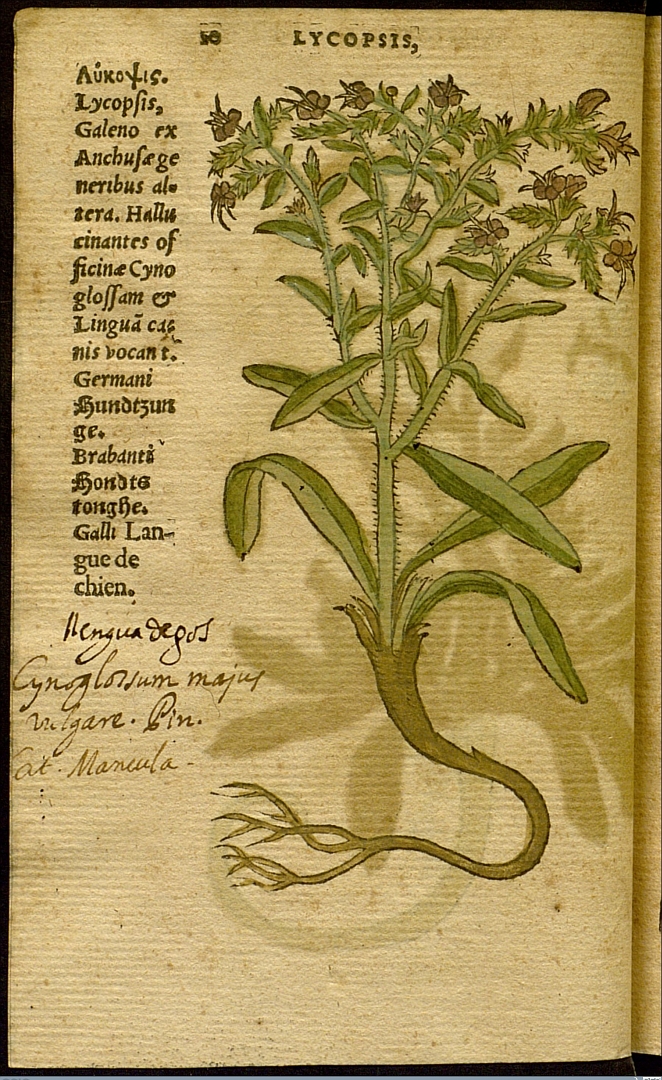 50 LYCOPSIS,
Λύκοψις.
Lycopſis,
Galeno ex
Anchuſæ ge
neribus al=
tera. Hallu
cinantes of
ficinæ Cyno
gloſſam &
Linguā ca=
nis vocant.
Germani
Hundtzun
ge.
Brabantis
Hondts
tonghe.
Galli Lan-
gue de
chien.
llengua de gos
Cynoglossum majus
vulgare. Pin.
Cat.